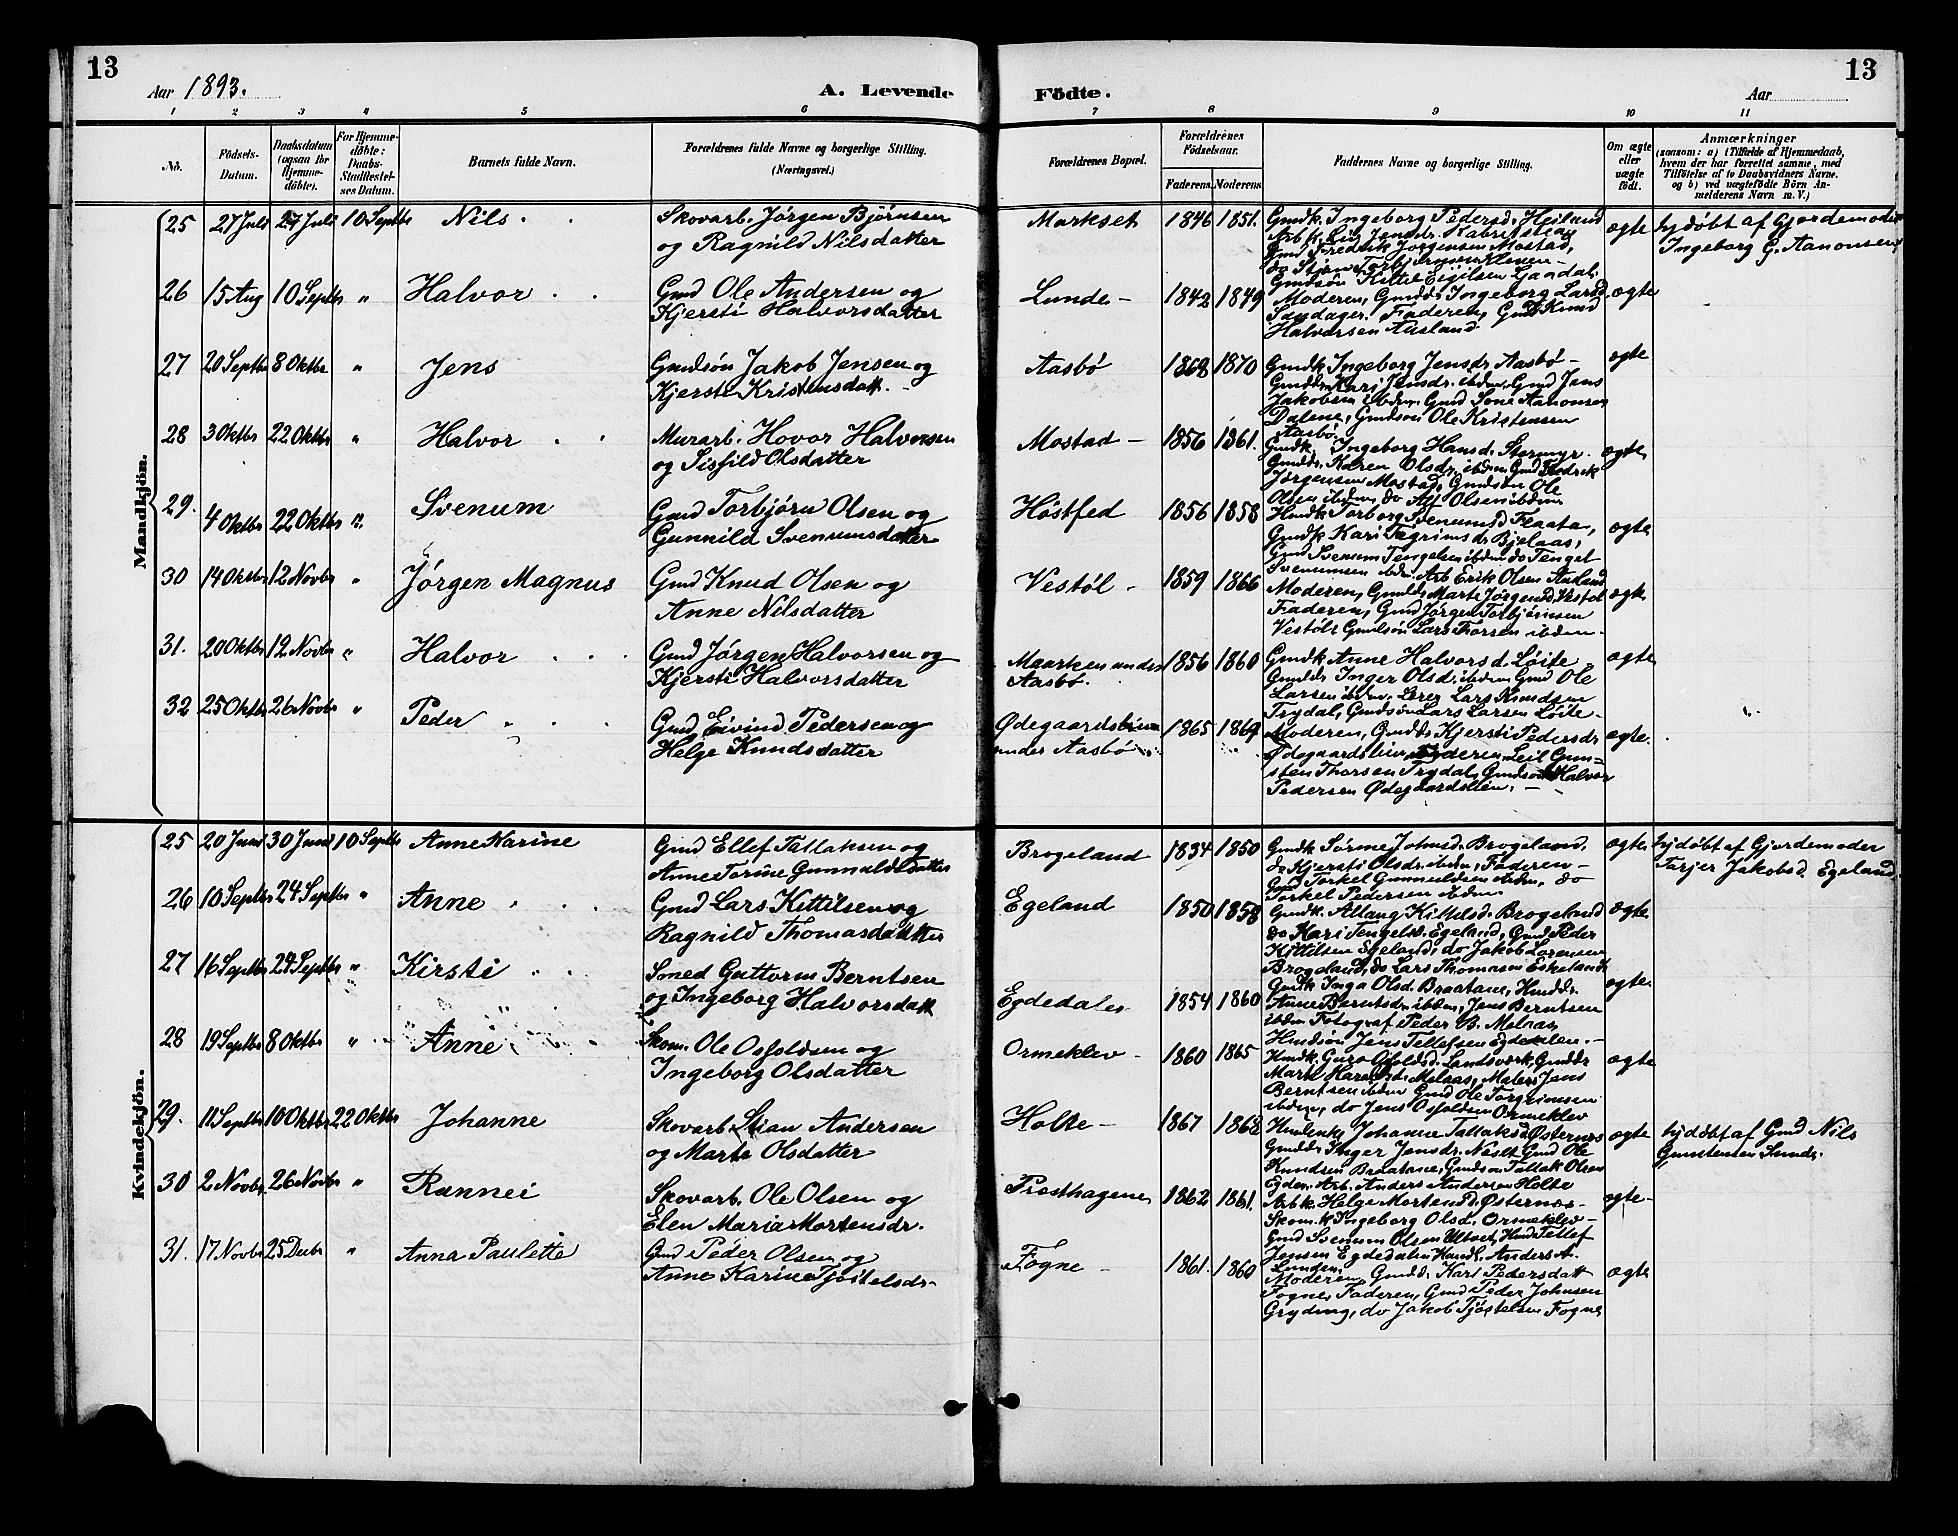 13
Aar 1893.
A. Levende
1 2 3 4 5 6
No.
Födsels-
Datum.
Daabsdatum
(ogsaa for
Hjemme-
döbte).
For Hjemme-
döbte:
Daabs-
Stadfæstel-
ses Datum.
Barnets fulde Navn.
Forældrenes fulde Navne og borgerlige Stilling.
(Næringsvei.)
Mandkjön.
25 27 Juli 27 Juli 10 Septbr Nils Skovarb. Jørgen Bjørnsen
og Ragnild Nilsdatter
26 15 Aug 10 Septbr " Halvor Gmd Ole Andersen og
Kjersti Halvorsdatter
27 20 Septbr 8 Oktbr " Jens Gmdsøn Jakob Jensen og
Kjersti Kristensdatt.
28 3 Oktbr 22 Oktbr " Halvor Murarb. Hovor Halvorsen
og Sisfild Olsdatter
29. 4 Oktbr 22 Oktbr " Svenum Gmd Torbjørn Olsen og
Gunnild Svenumsdatter
30 14 Oktbr 12 Novbr " Jørgen Magnus Gmd Knud Olsen og
Anne Nilsdatter
31. 20 Oktbr 12 Novbr " Halvor Gmd Jørgen Halvorsen og
Kjersti Halvorsdatter
32 25 Oktbr 26 Novbr " Peder Gmd Eivind Pedersen og
Helge Knudsdatter
Kvindekjön.
25 20 Juni 30 Juni 10 Septbr Anne Karine Gmd Ellef Tallaksen og
Anne Torine Gunnuldsdatter
26 10 Septbr 24 Septbr " Anne Gmd Lars Kittilsen og
Ragnild Thomasdatter
27 16 Septbr 24 Septbr " Kirsti Smed Guttorm Berntsen
og Ingeborg Halvorsdatt
28 19 Septbr 8 Oktbr " Anne Skom. Ole Osfoldsen og
Ingeborg Olsdatter
29. 11 Septbr 10 Oktbr 22 Oktbr Johanne Skovarb Stian Andersen
og Marte Olsdatter
30 2 Novbr 26 Novbr " Rannei Skovarb. Ole Olsen og
Elen Maria Mortensdr.
31. 17 Novbr 25 Decbr " Anna Paulette Gmd Peder Olsen og
Anne Karine Tjøstelsdr.
Födte.
Aar
13
7 8 9 10 11
Forældrenes Bopæl.
Forældrenes
Födselsaar.
Faderens. Moderens.
Faddernes Navne og borgerlige Stilling.
Om ægte
eller
uægte
födt.
Anmærkninger
(saasom: a) i Tilfælde af Hjemmedaab,
hvem der har forrettet samme, med
Tilföielse af to Daabsvidners Navne.
og b) ved uægtefödte Börn An-
melderens Navn m. V.)
Markset 1846 1851. Gmdk. Ingeborg Pedersd. Heiland ægte hjdøbt af Gjordemoder
Ingeborg G. Aanonsen
Gmd Fredrik Jørgensen Mostad,
Lunde 1842 1849 Gmdsøn Kittil Eigilsen Gaadal. ægte
Moderen, Gmdd. Ingeborg Larsd.
Faderen, Gmd Knud
Halvorsen Ausland
Aasbø 1868 1870 Gmdk Ingeborg Jensdr. Aasbø ægte
Gmddr. Kari Jensdr. ibden, Gmd Jens
Jakobsen ibden. Gmd Sone Aanonsen
Dalene, Gmdsøn Ole Kristensen
Aasbø
Mostad 1856 1861. Gmdk. Ingeborg Hansd. Stormyr ægte
Gmddr. Karen Olsdr. ibden, Gmd Fredrik
Jørgensen Mostad, Gmdsøn Ole
Olsen ibden, do Olsen ibden
Høstfed 1856 1858 Hmdk Torborg Svenumsd Flaata, ægte
Gmdk Kari Bjelaas,
Gmd Svenum Tengelsen ibden do Tengel
Svenumsen ibdn. Arb Erik Olsen Ausland
Vestøl 1859 1866 Moderen, Gmdd. Marte Jørgensd Vestøl ægte
Faderen, Gmd Jørgen Torbjørnsen
Vestøl Gmdsøn Lars Thorsen ibden
Maarken under
Aasbø. 1856 1860 Gmdk Anne Halvorsd. Løite ægte
Gmddr. Inger Olsd. ibden Gmd Ole
Larsen ibden. Lærer Lars Knudsen
Trydal, Gmdsøn Lars Larsen Løite
Ødegaardslien
under Aasbø 1865 1869 Moderen, Gmddr Kjersti Pedersdr ægte.
Ødegaardslien, Faderen, Leil Gun-
sten Thorsen Trydal, Gmdsøn Halvor
Pedersen Ødegaardslien.
Brogeland 1834 1850 Gmdk Johnsd. Brogeland. ægte hjdøbt af Gjordemoder
do Kjersti Olsdr. ibden, Faderen Tarjer Jakobsd Egeland
Gmd Torkel Gunnuldsen ibden, do
Torkel Pedersen ibden
Egeland 1850 1858 Gmdk. Kittelsd. Brogeland ægte
do Kari Tengelsd. Egeland, Gmd Peder
Kittilsen Egeland, do Jakob Lorensen
Brogeland, do Lars Thomasen Eskeland
Egdedalen 1854 1860 Gmdk Inga Olsd. Braatane, Hmddr. ægte
Anne Berntsdr. ibden, Jens Berntsen
ibden Fotograf Peder B. Melaas,
Hmdsøn Jens Tellefsen Egdedalen.
Ormeklev 1860 1865 Hmdk. Guro Osfoldsd. Landsverk, Gmddr ægte
Marte Haraldsd. Melaas, Maler Jens
Berntsen ibden Gmd Ole Torgrimsen
ibden, do Jens Osfoldsen Ormeklev
Holte 1867 1862 Hmdenke Johanne Tallaksd Østernes ægte hjdøbt af Gmd Nils
Gmddr Inger Jensdr. Næslt Gmd Ole Gunstensen Lunde.
Knudsen Braatane, Gmdsøn Tallak Olsen
Egden. Arb. Anders Andersen Holte
Præsthagene 1862 1861. Arbk. Helge Mortensd. Østernes ægte
Skom.k Ingeborg Olsd. Ormeklev
Gmd Svenum Olsen Ultvet, Hmd Tellef
Jensen Egdedalen Handl. Anders A.
Lunden
Fogne 1861. 1860 Moderen, Gmdd. Kari Pedersdatt ægte
Fogne, Faderen, Gmd Peder Johnsen
Gryting, do Jakob Tjøstelsen Fogne